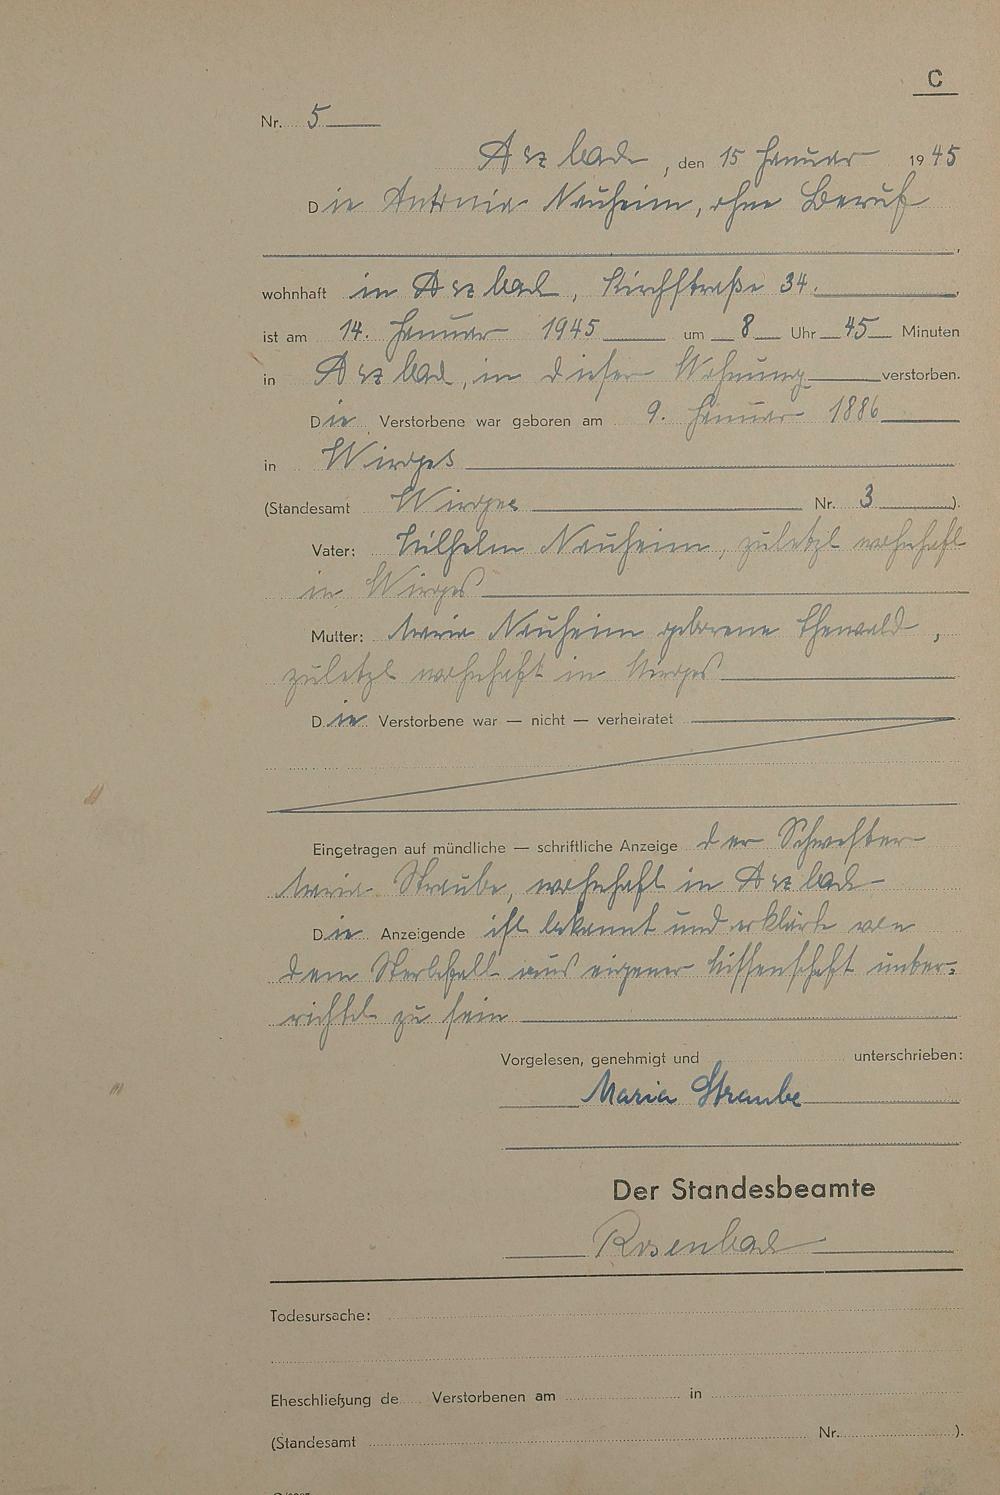 C
Nr. 5
Arzbach, den 15 Januar 1945
Die Antonia Neuheim, ohne Beruf
wohnhaft in Arzbach, Kirchstraße 34.
ist am 14. Januar 1945 um 8 Uhr 45 Minuten
in Arzbach, in dieser Wohnung verstorben.
Die Verstorbene war geboren am 9. Januar 1886
in Wirges
(Standesamt Wirges Nr. 3 ).
Vater: Wilhelm Neuheim, zuletzt wohnhaft
in Wirges
Mutter: Maria Neuheim geborene Ehewald,
zuletzt wohnhaft in Wirges
Die Verstorbene war — nicht — verheiratet
Eingetragen auf mündliche — schriftliche Anzeige der Schwester
Maria Straube, wohnhaft in Arzbach
Die Anzeigende ist bekannt und erklärte von
dem Sterbefall aus eigener Wissenschaft unter-
richtet zu sein
Vorgelesen, genehmigt und unterschrieben:
Maria Straube
Der Standesbeamte
Todesursache:
Eheschließung de Verstorbenen am in
(Standesamt Nr. ).